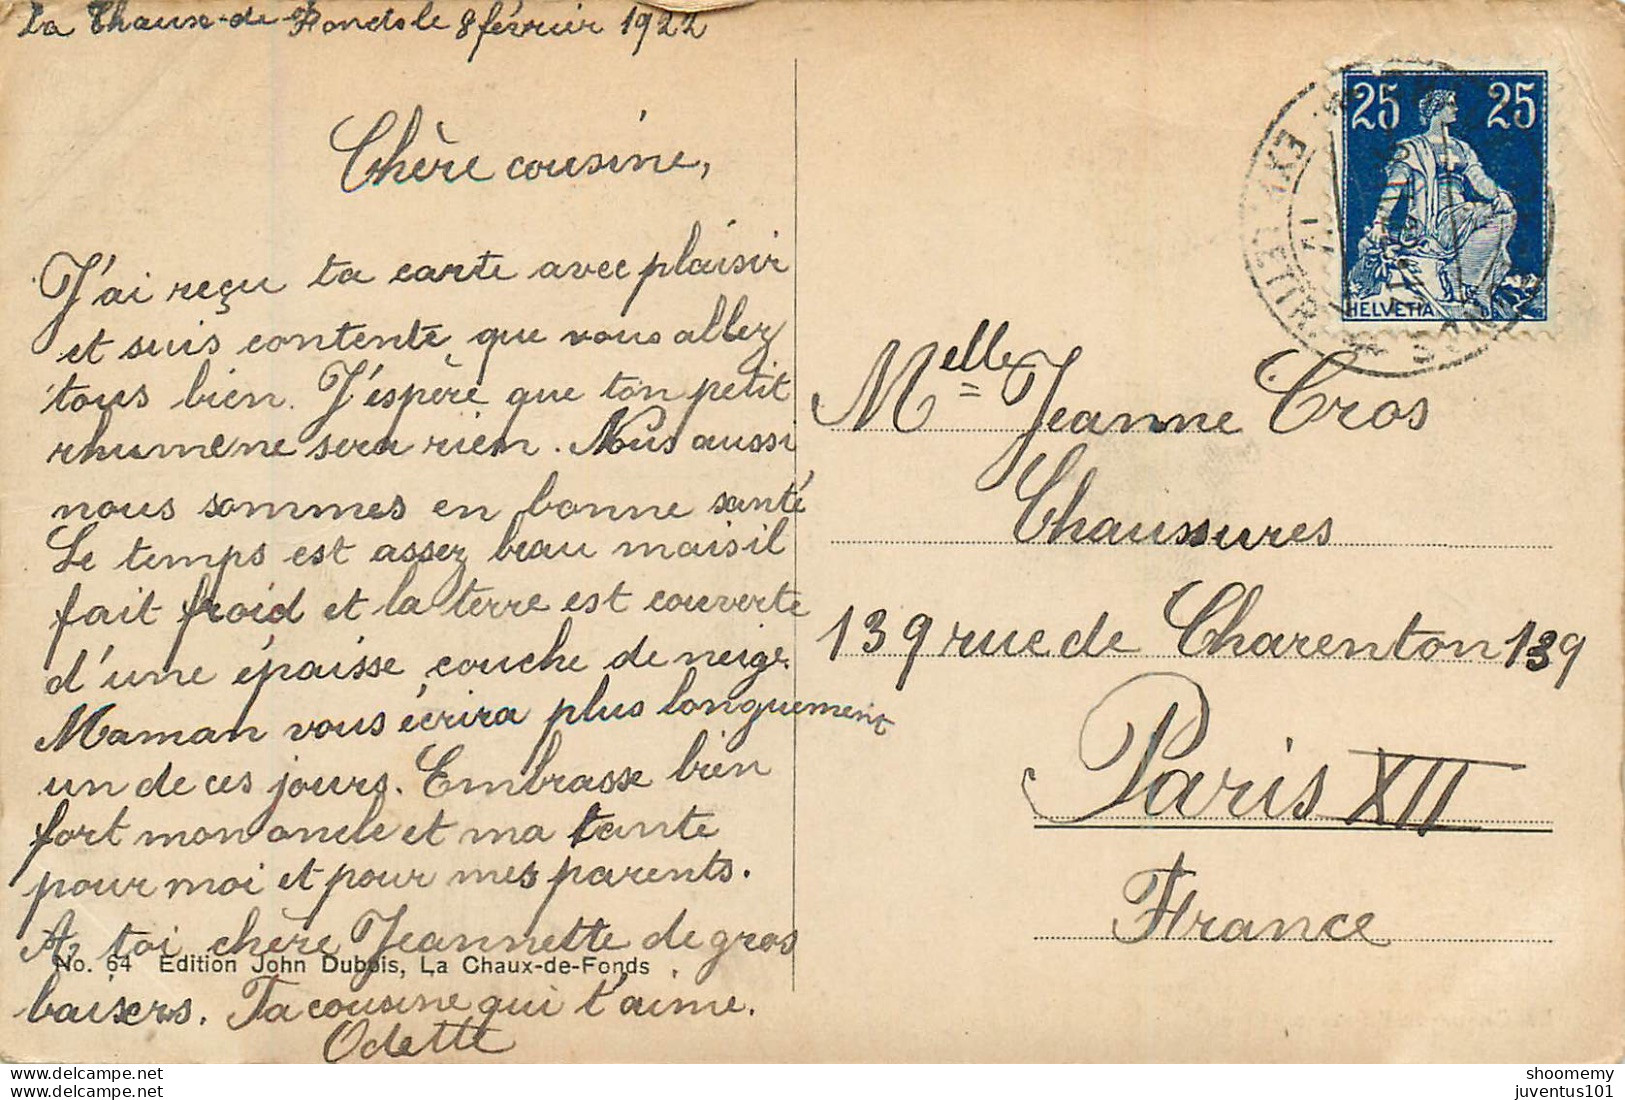 La Chaux-de-Fonds le 8 février 1922
Chère cousine,
J'ai reçu ta carte avec plaisir
et suis contente que vous allez
tous bien. J'espère que ton petit
rhume ne sera rien. Nous aussi
nous sommes en bonne santé
Le temps est assez beau mais il
fait froid et la terre est couverte
d'une épaisse couche de neige.
Maman vous écrira plus longuement
un de ces jours. Embrasse bien
fort mon oncle et ma tante
pour moi et pour mes parents.
A toi chère Jeannette de gros
No. 64 Edition John Dubois, La Chaux-de-Fonds
baisers. Ta cousine qui t'aime.
Odette
25 25
HELVETIA
EXP. LETTR.
Melle Jeanne Cros
Chaussures
139 rue de Charenton 139
Paris XII
France
www.delcampe.net
www.delcampe.net
shoomemy
juventus101